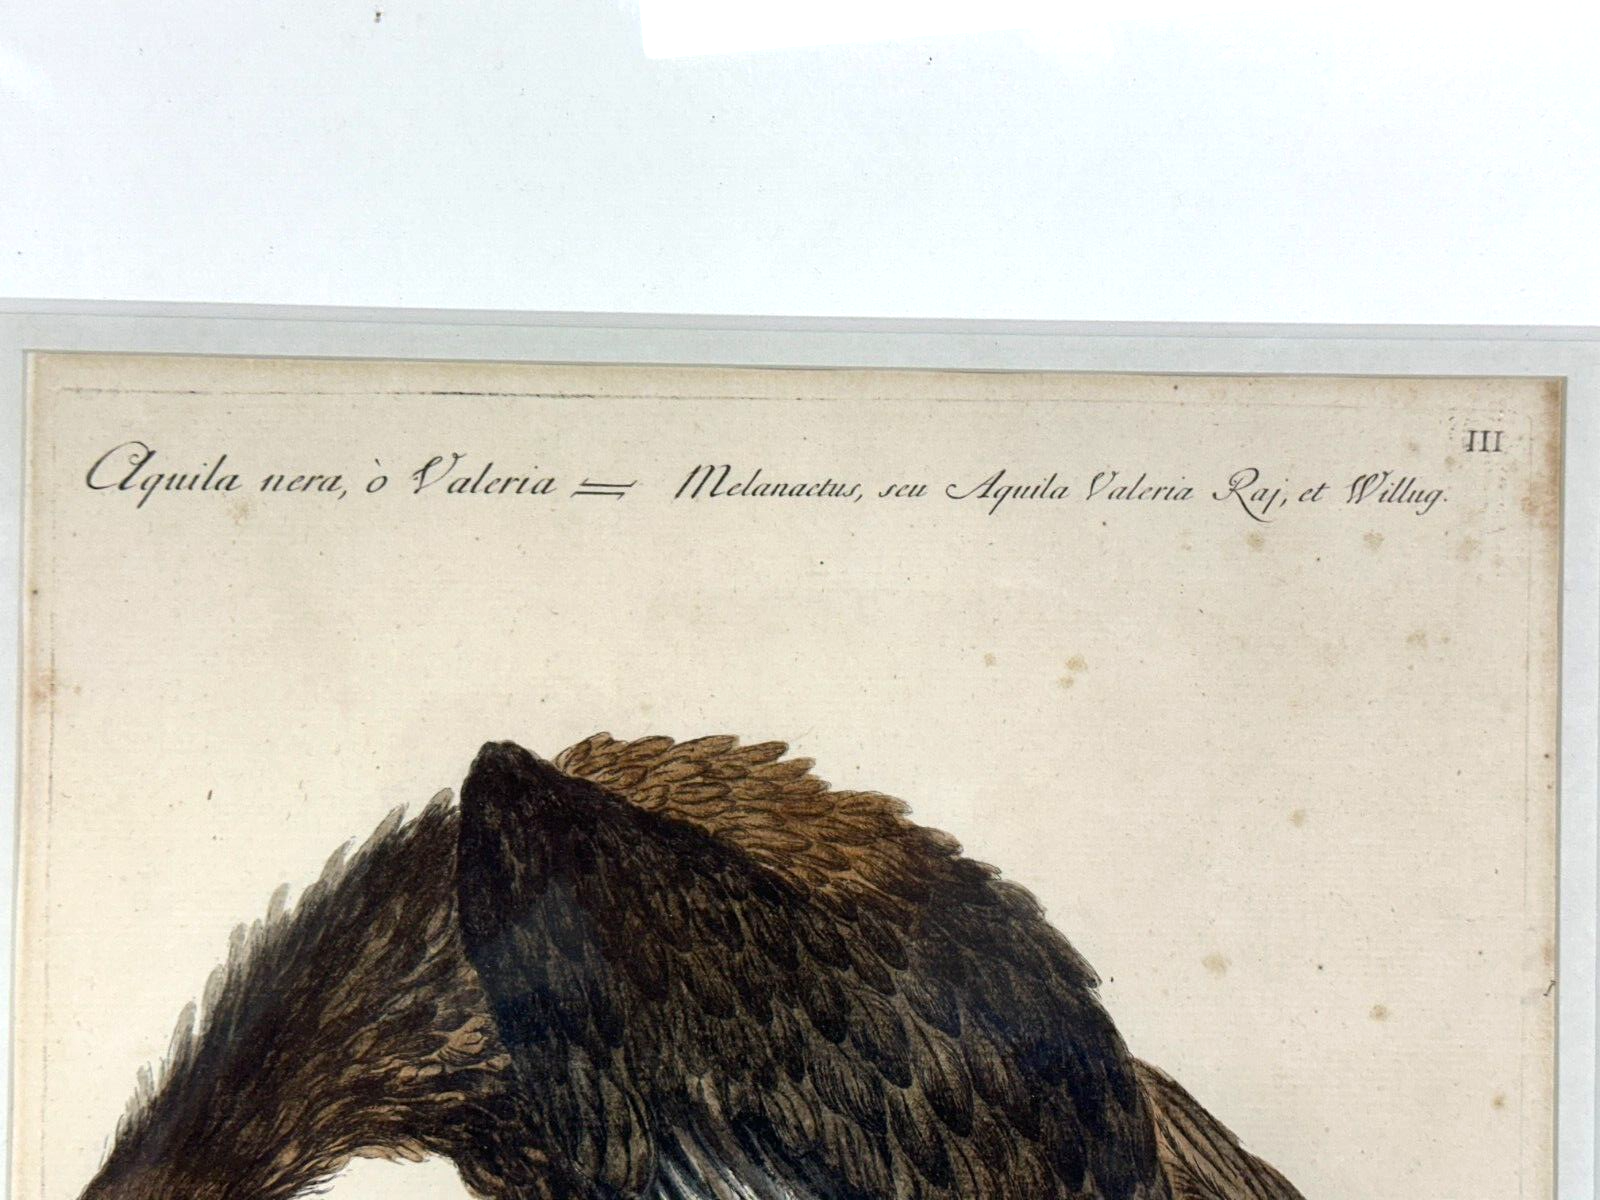 III
Aquila nera, ò Valeria = Melanaetus, seu Aquila Valeria Raj, et Willug.